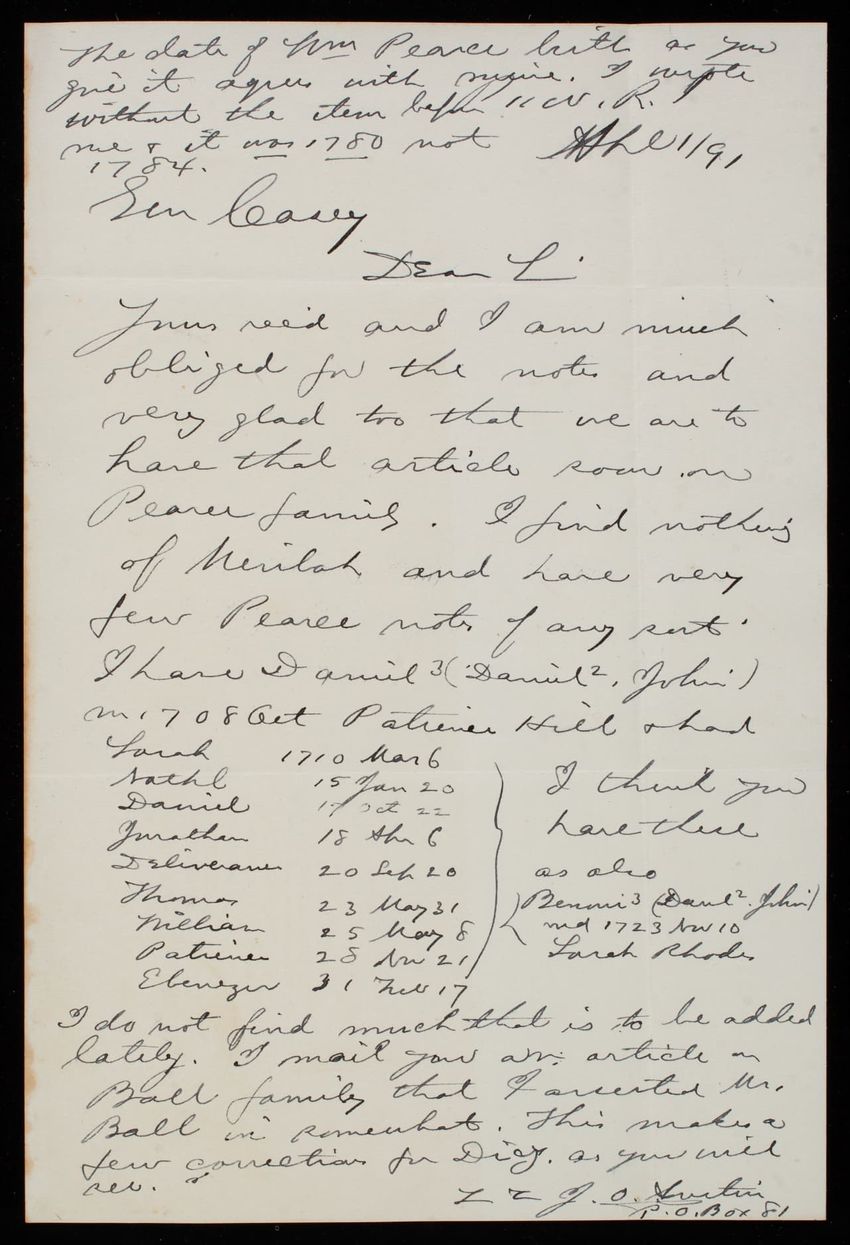 The date of Wm Pearce birth as you
give it agrees with mine. I wrote
without the item before
me & it was 1780 not
1784.
1/91
Gen Casey
Dear Si
Yours rec'd and I am much
obliged for the notes and
very glad too that we are to
have that article soon on
Pearce family. I find nothing
of and have very
few Pearce notes of any sort.
I have Daniel 3 (Daniel 2, John 1)
m. 1708 Oct Patience Hill & had
Sarah 1710 Mar 6
Nathl 15 Jan 20
Daniel 17 Oct 22
Jonathan 18 Apr 6
Deliverance 20 Sep 20
Thomas 23 May 31
William 25 May 8
Patience 28 Nov 21
Ebenezer 31 Feb 17
I think you
have these
as also
Benoni 3 (Danl 2. John 1)
md 1723 Nov 10
Sarah Rhodes
I do not find much that is to be added
lately. I mail you an article on
Ball family that I assisted Mr.
Ball in somewhat. This makes a
few corrections for Dicy. as you will
see.
J. O. Austin
P.O. Box 81